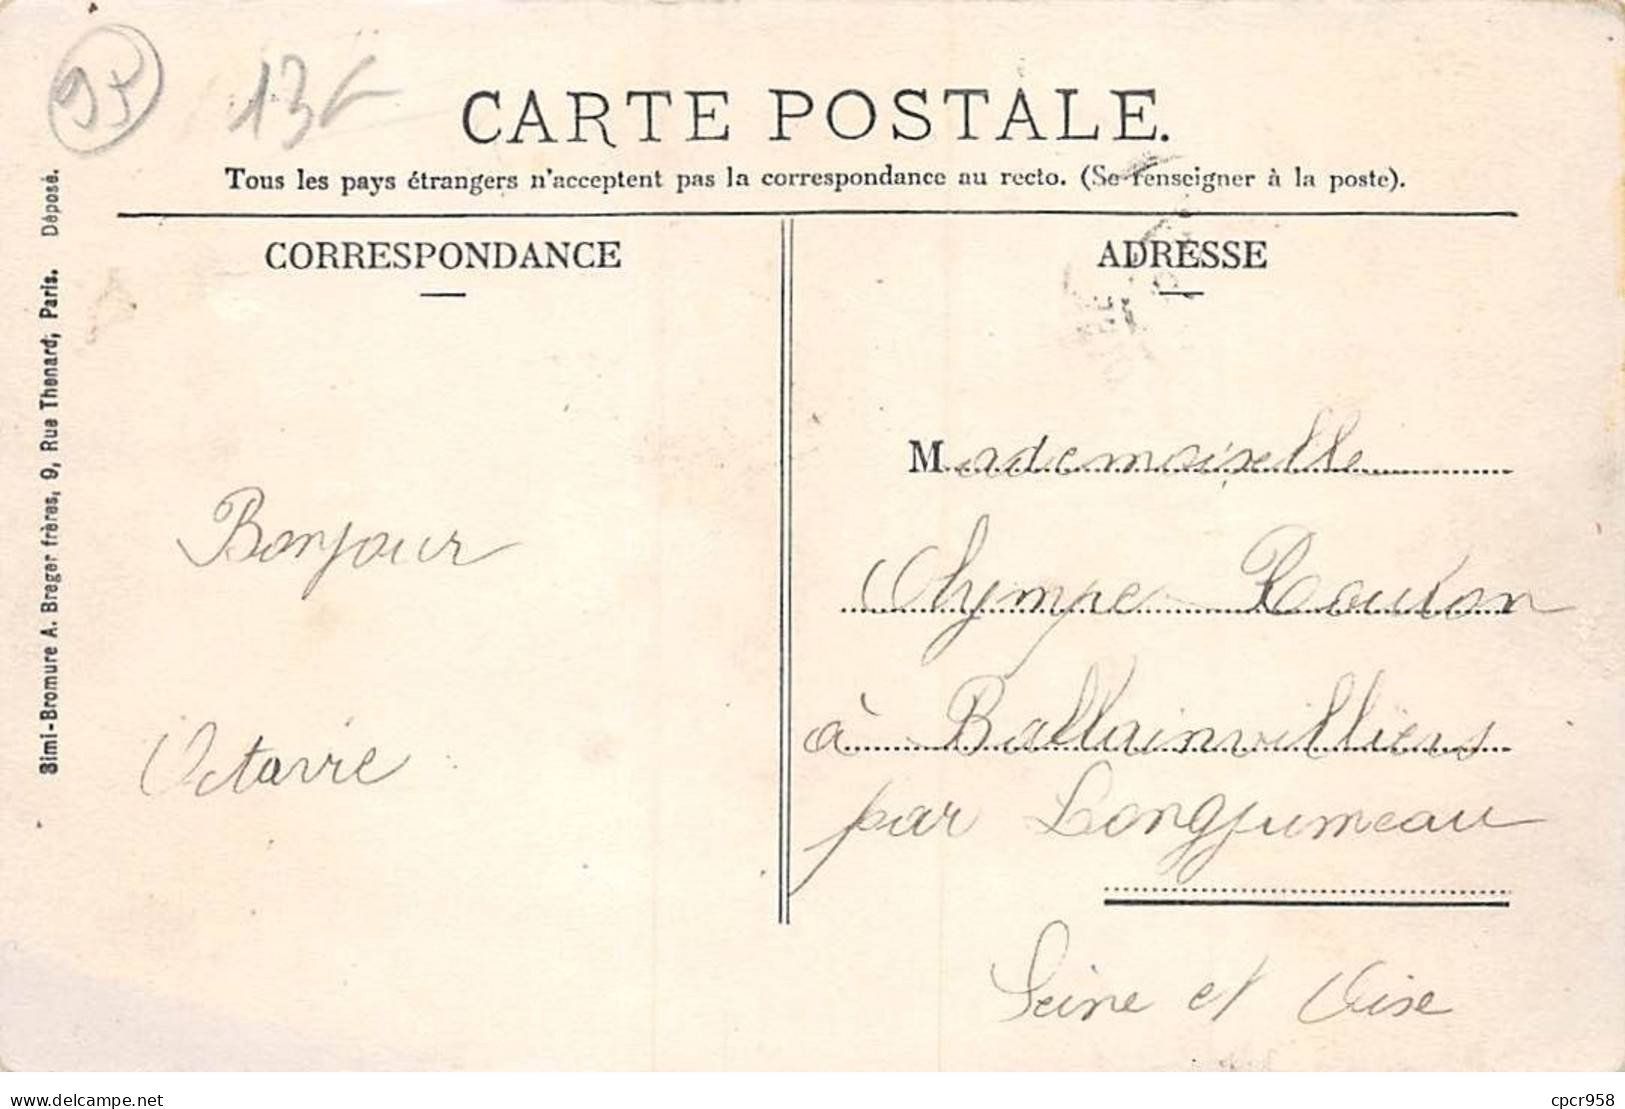 95 13F
CARTE POSTALE.
Tous les pays étrangers n'acceptent pas la correspondance au recto. (Se renseigner à la poste).
Simi-Bromure A. Breger frères, 9, Rue Thenard, Paris. Déposé.
CORRESPONDANCE
Bonjour
Octavie
ADRESSE
Mademoiselle
Olympe
à Ballainvilliers
par Longjumeau
Seine et Oise
www.delcampe.net
cpcr958